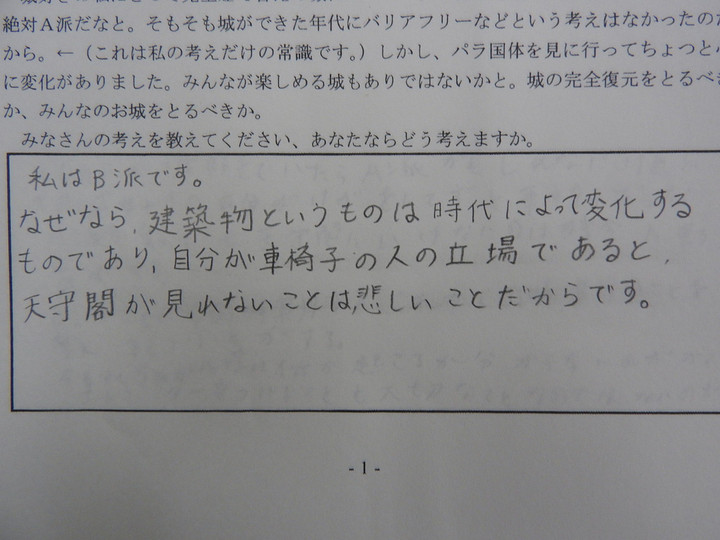 絶対A派だなと。そもそも城ができた年代にバリアフリーなどという考えはなかったのだ
から。←（これは私の考えだけの常識です。）しかし、パラ国体を見に行ってちょっと
に変化がありました。みんなが楽しめる城もありではないかと。城の完全復元をとるべき
か、みんなのお城をとるべきか。
みなさんの考えを教えてください、あなたならどう考えますか。
私はB派です。
なぜなら、建築物というものは時代によって変化する
ものであり、自分が車椅子の人の立場であると、
天守閣が見れないことは、悲しいことだからです。
- 1 -